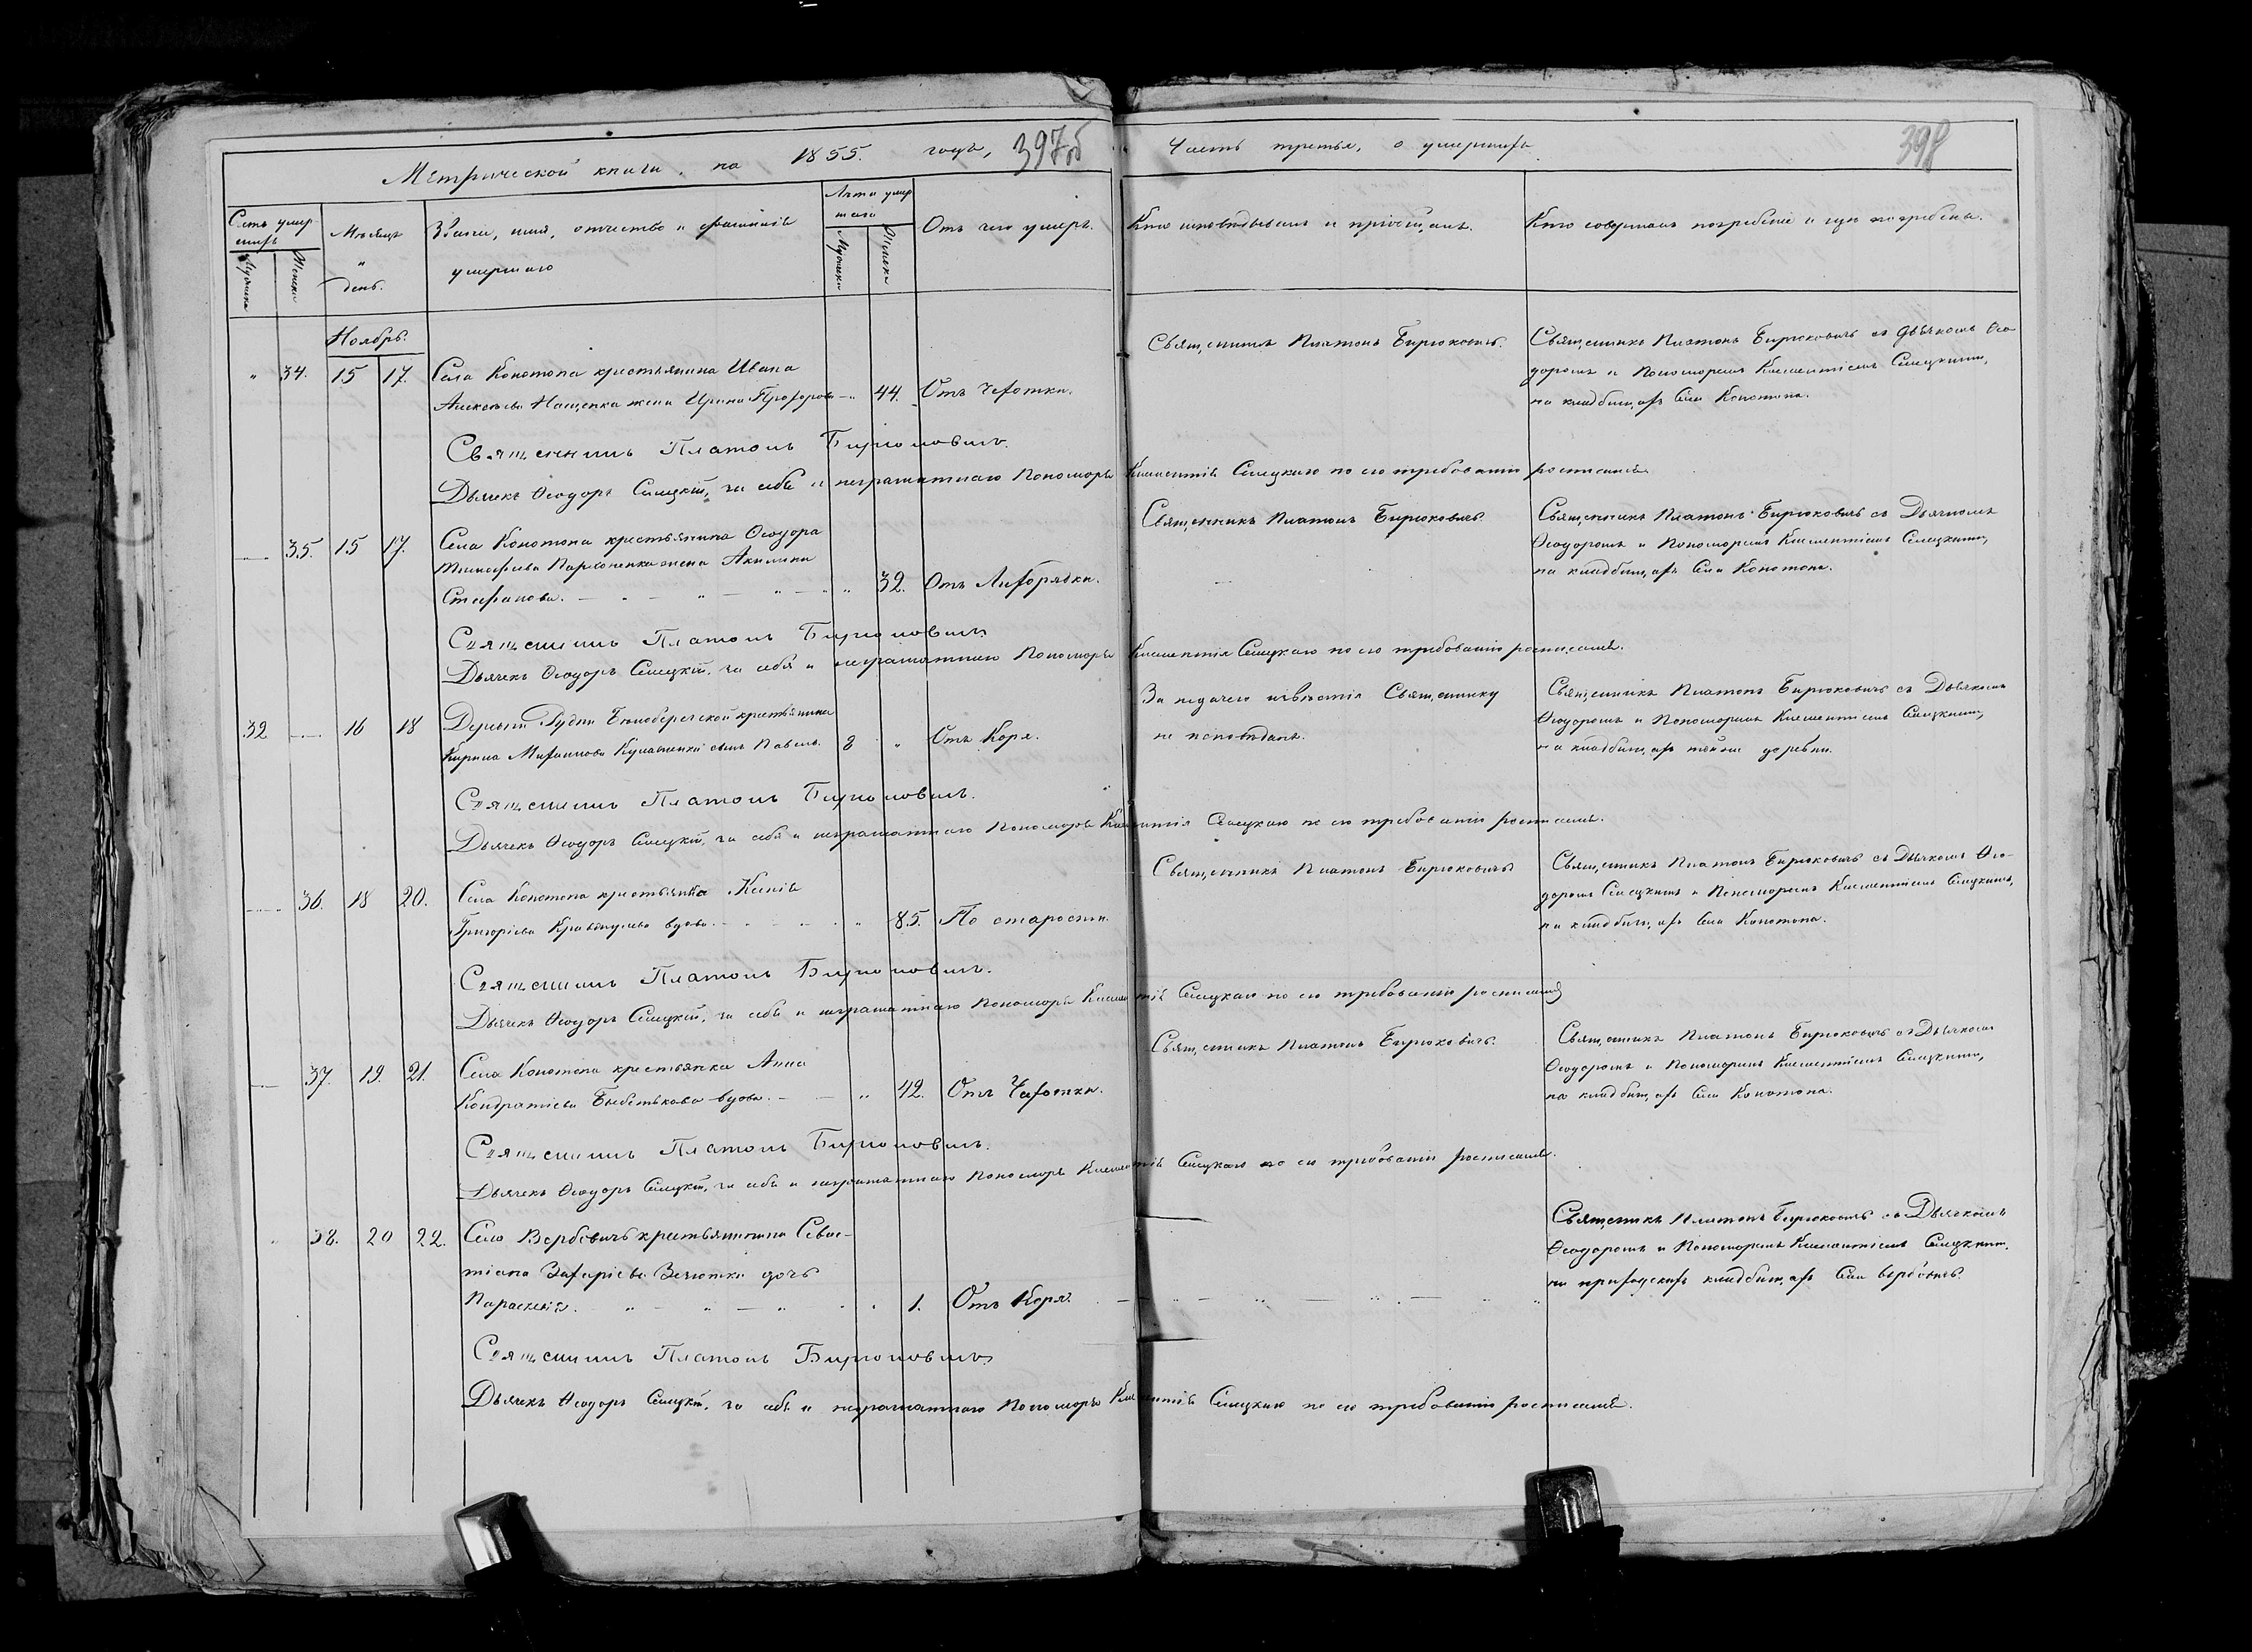 Метрической книги, на 1855. годъ, 397об
Часть третья, о умершихъ
398
Счетъ умершихъ
Мужеска
Женска
Мѣсяцъ и день.
Званіе, имя, отчество и фамилія умершаго
Лѣта умершаго
Мужеска
Женска
Отъ чего умеръ.
Кто исповѣдывалъ и пріобщалъ.
Кто совершалъ погребеніе и гдѣ погребены.
Ноябрь.
" 34. 15 17. Села Конотопа крестьянина Ивана
Алексѣева Нащенка жена Ирина Прохорова " 44. Отъ Чахотки.
Священникъ Платонъ Бирюковичъ.
Священникъ Платонъ Бирюковичъ съ Дьячкомъ Ѳео-
доромъ и Пономоремъ Климентіемъ Сѣлецкимъ,
на кладбищахъ села Конотопа.
Священникъ Платонъ Бирюковичъ.
Дьячекъ Ѳеодоръ Сѣлецкій, за себя и неграматнаго Пономоря Климентія Сѣлецкаго по его требованію росписался.
35. 15 17. Села Конотопа крестьянина Ѳеодора
Тимофѣева жена Акилина
Стефанова. " 32. Отъ Лихорядки.
Священникъ Платонъ Бирюковичъ.
Священникъ Платонъ Бирюковичъ съ Дьячкомъ
Ѳеодоромъ и Пономоремъ Климентіемъ Сѣлецкимъ,
на кладбищахъ села Конотопа.
Священникъ Платонъ Бирюковичъ
Дьячекъ Ѳеодоръ Сѣлецкій, за себя и неграматнаго Пономоря Климентія Сѣлецкаго по его требованію росписался.
32 16 18 Деревни Рудни крестьянина
Кирила сынъ Павелъ. 8 " Отъ Коря.
За недачею извѣстія Священнику
не исповѣданъ.
Священникъ Платонъ Бирюковичъ съ Дьячкомъ
Ѳеодоромъ и Пономоремъ Климентіемъ Сѣлецкимъ,
на кладбищахъ тойже деревни.
Священникъ Платонъ Бирюковичъ.
Дьячекъ Ѳеодоръ Сѣлецкій, за себя и неграматнаго Пономоря Климентія Сѣлецкаго по его требованію росписался.
36. 18 20. Села Конотопа крестьянка Ксенія
Григорієва вдова. " 85. По старости.
Священникъ Платонъ Бирюковичъ
Священникъ Платонъ Бирюковичъ съ Дьячкомъ Ѳео-
доромъ Сѣлецкимъ и Пономоремъ Климентіемъ Сѣлецкимъ,
на кладбищахъ села Конотопа.
Священникъ Платонъ Бирюковичъ.
Дьячекъ Ѳеодоръ Сѣлецкій, за себя и неграматнаго Пономоря Климентія Сѣлецкаго по его требованію росписался
37. 19. 21. Села Конотопа крестьянка Анна
Кондратіева вдова. " 42. Отъ Чахотки.
Священникъ Платонъ Бирюковичъ.
Священникъ Платонъ Бирюковичъ съ Дьячкомъ
Ѳеодоромъ и Пономоремъ Климентіемъ Сѣлецкимъ,
на кладбищахъ села Конотопа.
Священникъ Платонъ Бирюковичъ.
Дьячекъ Ѳеодоръ Сѣлецкій, за себя и неграматнаго Пономоря Климентія Сѣлецкаго по его требованію росписался.
" 38. 20 22. Села Вербовичъ крестьянина Севас-
тіана Захаріева дочь
Параскевія. " 1. Отъ Коря.
Священникъ Платонъ Бирюковичъ съ Дьячкомъ
Ѳеодоромъ и Пономоремъ Климентіемъ Сѣлецкимъ.
на приходскихъ кладбищахъ села Вербовичъ.
Священникъ Платонъ Бирюковичъ
Дьячекъ Ѳеодоръ Сѣлецкій, за себя и неграматнаго Пономоря Климентія Сѣлецкаго по его требованію росписался.